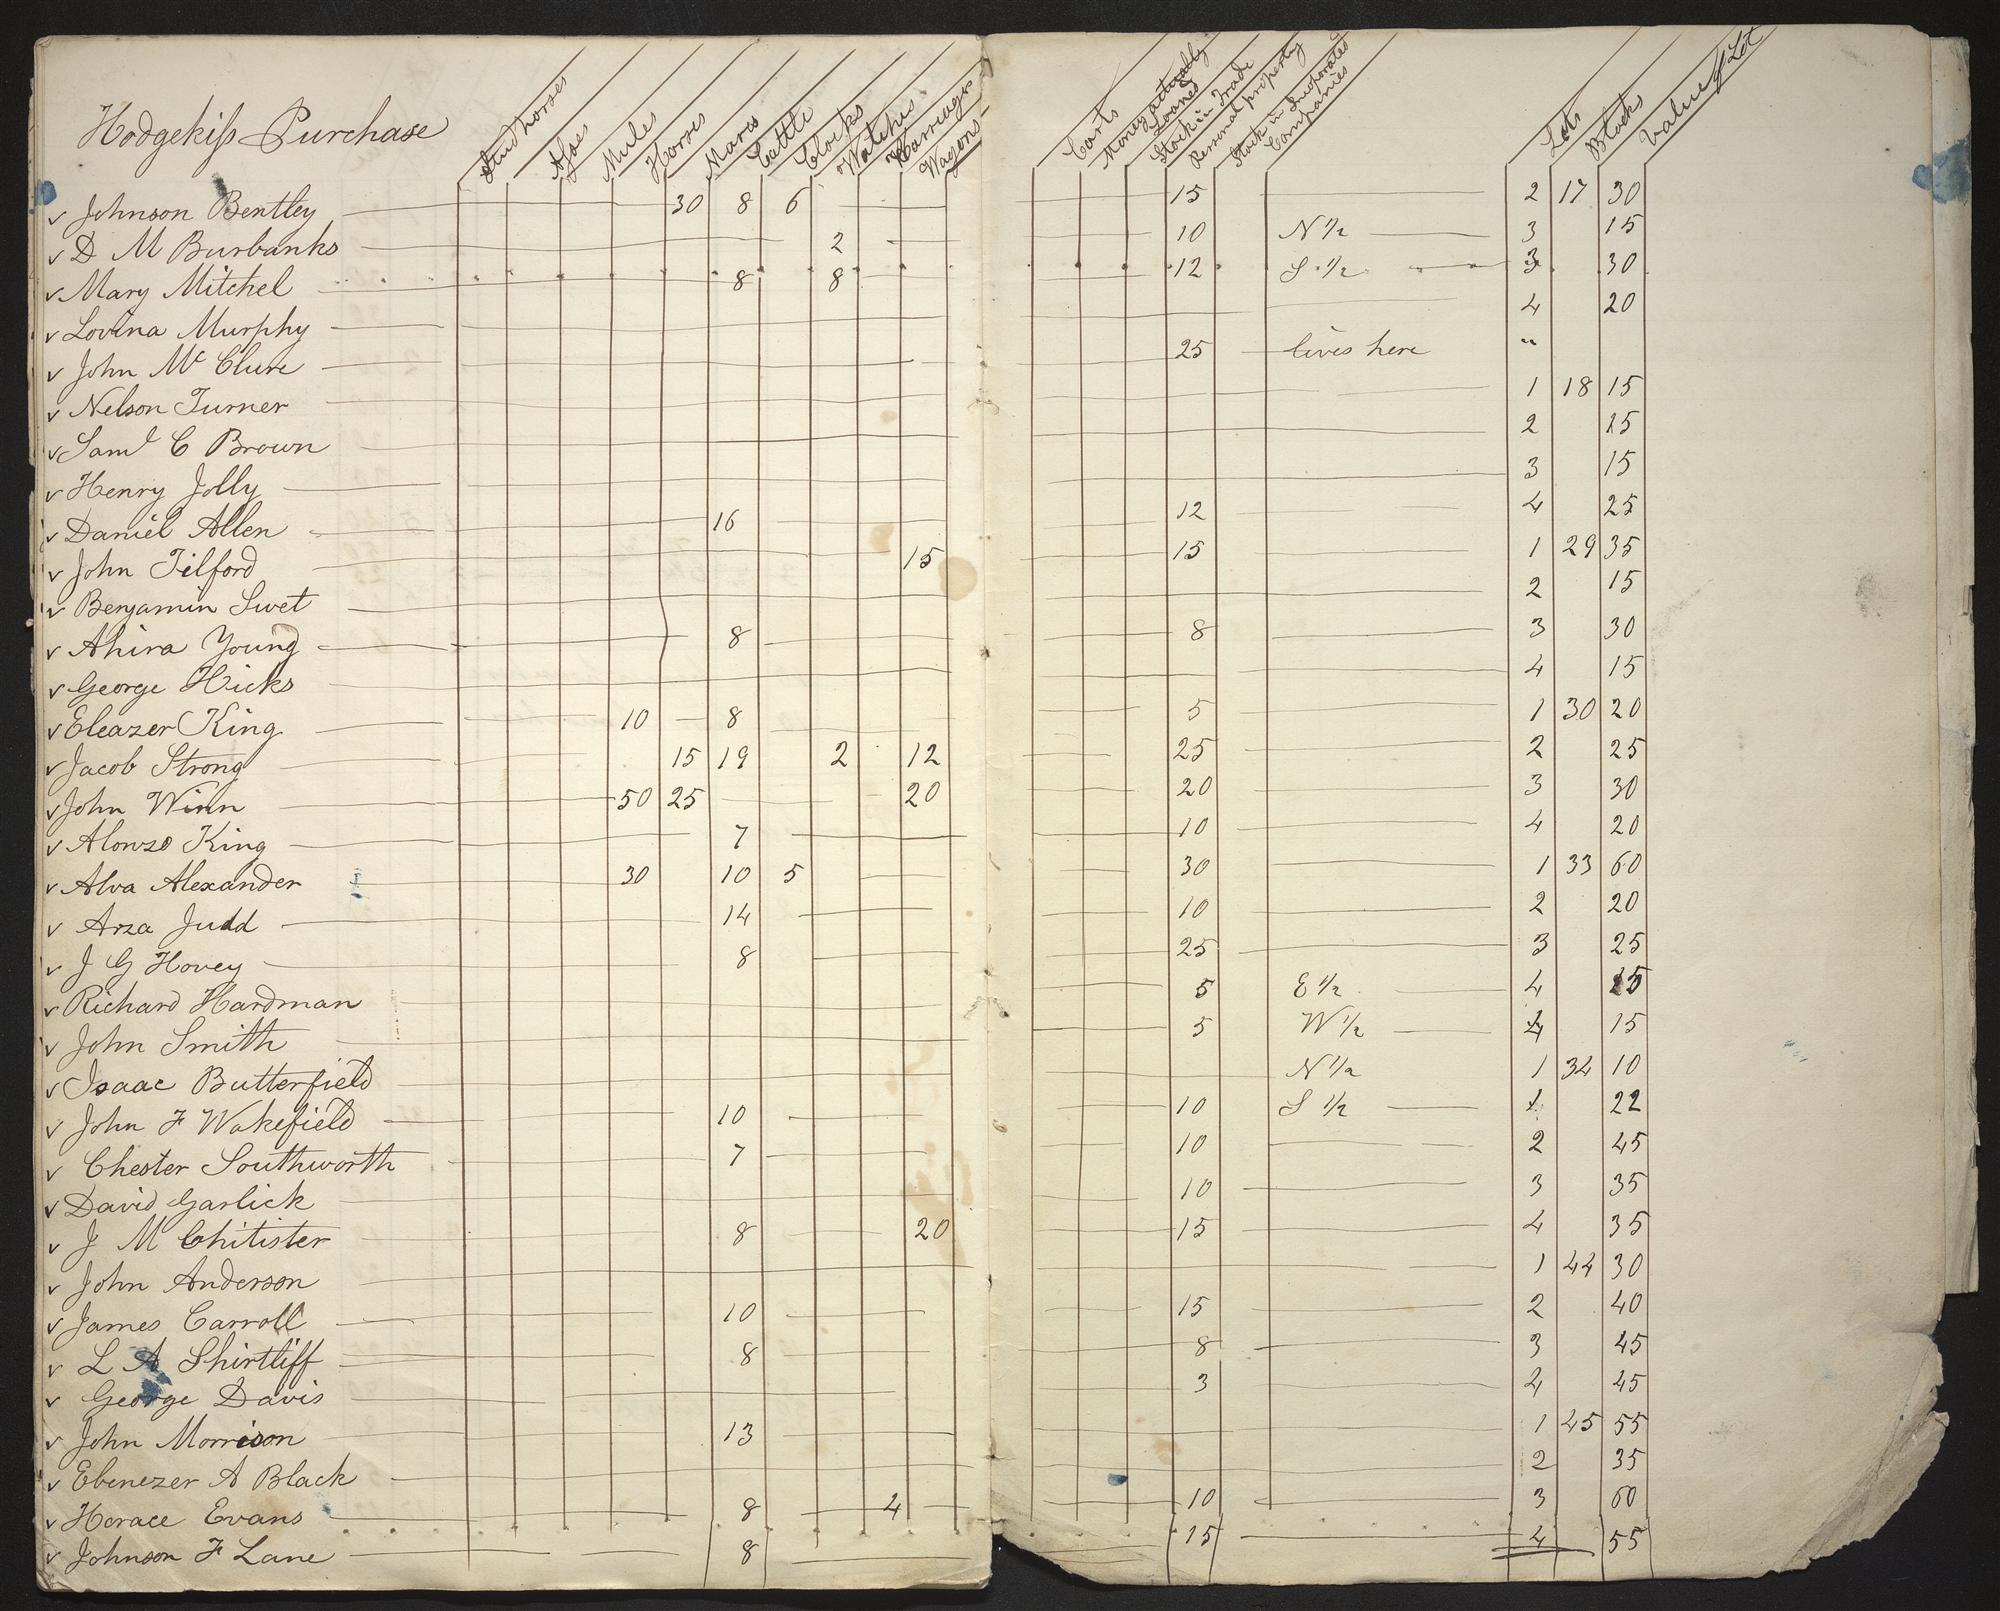 Hodgekiss Purchase
Stud horses Asses Mules Horses Mares Cattle Clocks Watches Carriages Wagons Carts Money actually Loaned Stock in Trade Personal property Stock in Incoporated Companies Lots Blocks Value of Lot
v Johnson Bentley 30 8 6 15 2 17 30
v D M Burbanks 2 10 N 1/2 3 15
v Mary Mitchel 8 8 12 S 1/2 3 30
v Lovina Murphy 4 20
v John Mc Clure 25 lives here "
v Nelson Turner 1 18 15
v Saml C Brown 2 15
v Henry Jolly 3 15
v Daniel Allen 16 12 4 25
v John Tilford 15 15 1 29 35
v Benjamin Swet 2 15
v Ahira Young 8 8 3 30
v George Hicks 4 15
v Eleazer King 10 8 5 1 30 20
v Jacob Strong 15 19 2 12 25 2 25
v John Winn 50 25 20 20 3 30
v Alonzo King 7 10 4 20
v Alva Alexander 30 10 5 30 1 33 60
v Arza Judd 14 10 2 20
v J G Hovey 8 25 3 25
v Richard Hardman 5 E 1/2 4 15
v John Smith 5 W 1/2 4 15
v Isaac Butterfield N 1/2 1 34 10
v John F Wakefield 10 10 S 1/2 1 22
v Chester Southworth 7 10 2 45
v David Garlick 10 3 35
v J M Chitister 8 20 15 4 35
v John Anderson 1 44 30
v James Carroll 10 15 2 40
v L A Shirtliff 8 8 3 45
v George Davis 3 4 45
v John Morrison 13 1 45 55
v Ebenezer A Black 2 35
v Horace Evans 8 4 10 3 60
v Johnson F Lane 8 15 4 55